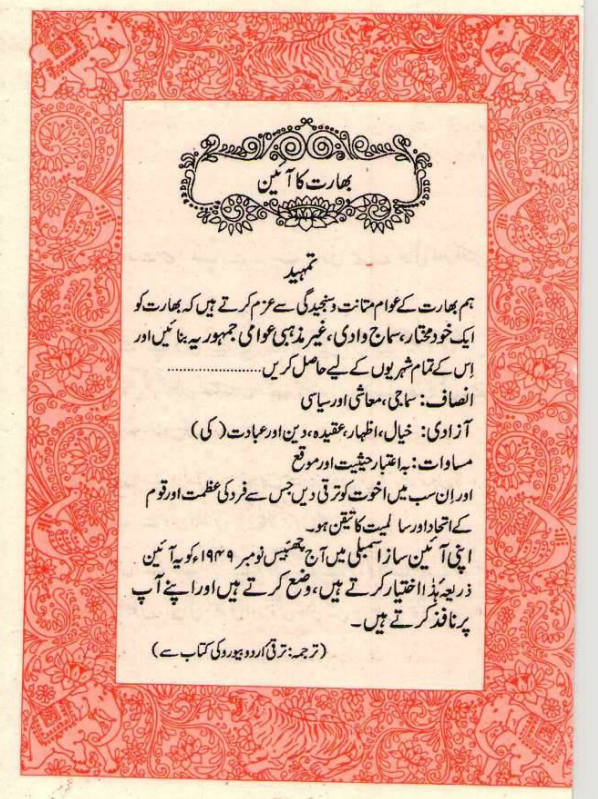 بھارت کا آئین
تمہید
ہم بھارت کے عوام متانت و سنجیدگی سے عزم کرتے ہیں کہ بھارت کو
ایک خود مختار، سماج وادی، غیر مذہبی عوامی جمہوریہ بنائیں اور
اِس کے تمام شہریوں کے لیے حاصل کریں.....................
انصاف: سماجی، معاشی اور سیاسی
آزادی: خیال، اظہار، عقیدہ، دین اور عبادت (کی)
مساوات: بہ اعتبار حیثیت اور موقع
اور اِن سب میں اخوت کو ترقی دیں جس سے فرد کی عظمت اور قوم
کے اتحاد اور سالمیت کا تیقن ہو۔
اپنی آئین ساز اسمبلی میں آج چھبیس نومبر ۱۹۴۹ء کو یہ آئین
ذریعہ ہٰذا اختیار کرتے ہیں، وضع کرتے ہیں اور اپنے آپ
پر نافذ کرتے ہیں۔
(ترجمہ: ترقی اردو بیورو کی کتاب سے)